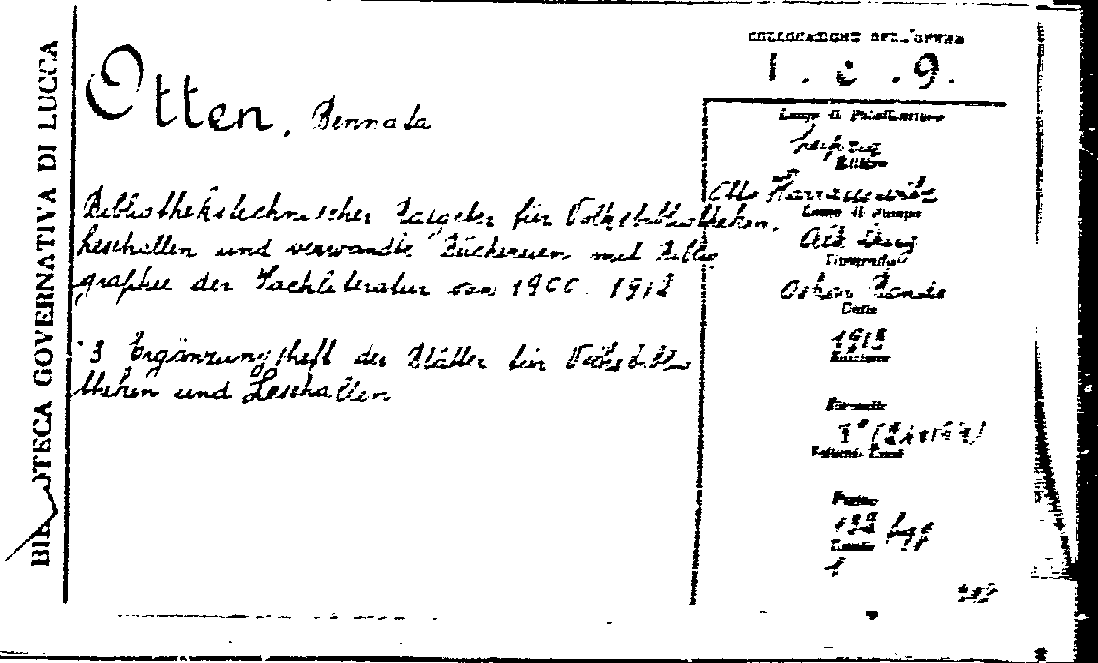 BIBLIOTECA GOVERNATIVA DI LUCCA
COLLOCAZIONE DELL'OPERA
I. c. 9.
Otten, Bennata
Bibliothekstechnischer Ratgeber für Volksbibliotheken,
Leschallen und verwandte Büchereien mit Biblio
graphie der Fachliteratur von 1900-1912
3 Ergänzungsheft der Blätter für Volksbiblio
theken und Lesehallen
Luogo di Pubblicazione
Leipzig
Editore
Otto Harrassowitz
Luogo di stampa
Tipografia
Oskar
Data
1913
Edizione
Formato
Volumi